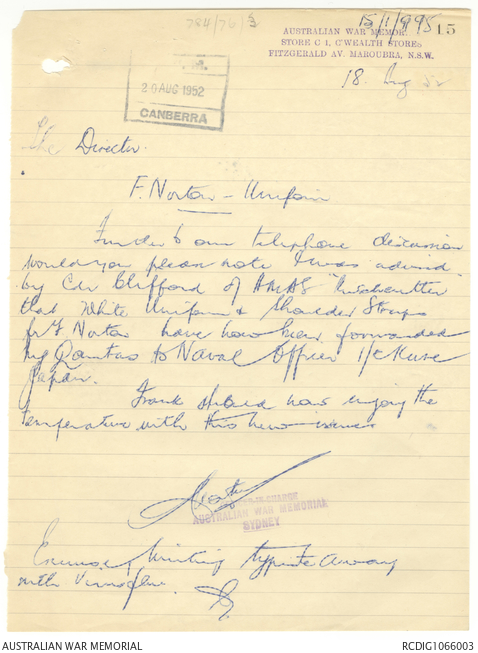 784/76/
15/1/1/95 15
AUSTRALIAN WAR MEMOR
STORE C 1, C'WEALTH STORES
FITZGERALD AV. MAROUBRA, N.S.W.
18 Aug 52
20 AUG 1952
CANBERRA
The Director.
F. Norton - Uniform
Further to our telephone discussion
would you please note I was advised
by Cdr Clifford of HMAS "
that White Uniform & Shoulder Straps
for F Norton have now been forwarded
by Qantas to Naval Officer I/c Kure
Japan.
Frank should now enjoy the
temperature with this new issue
IN-CHARGE
AUSTRALIAN WAR MEMORIAL
SYDNEY
Excuse writing typiste away
with
AUSTRALIAN WAR MEMORIAL
RCDIG1066003